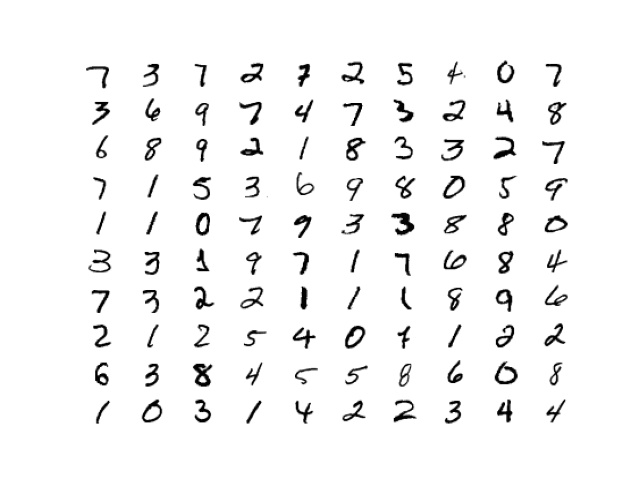 7 3 7 2 7 2 5 4 0 7
3 6 9 7 4 7 3 2 4 8
6 8 9 2 1 8 3 3 2 7
7 1 5 3 6 9 8 0 5 9
1 1 0 7 9 3 3 8 8 0
3 3 1 9 7 1 7 6 8 4
7 3 2 2 1 1 1 8 9 6
2 1 2 5 4 0 7 1 2 2
6 3 8 4 5 5 8 6 0 8
1 0 3 1 4 2 2 3 4 4